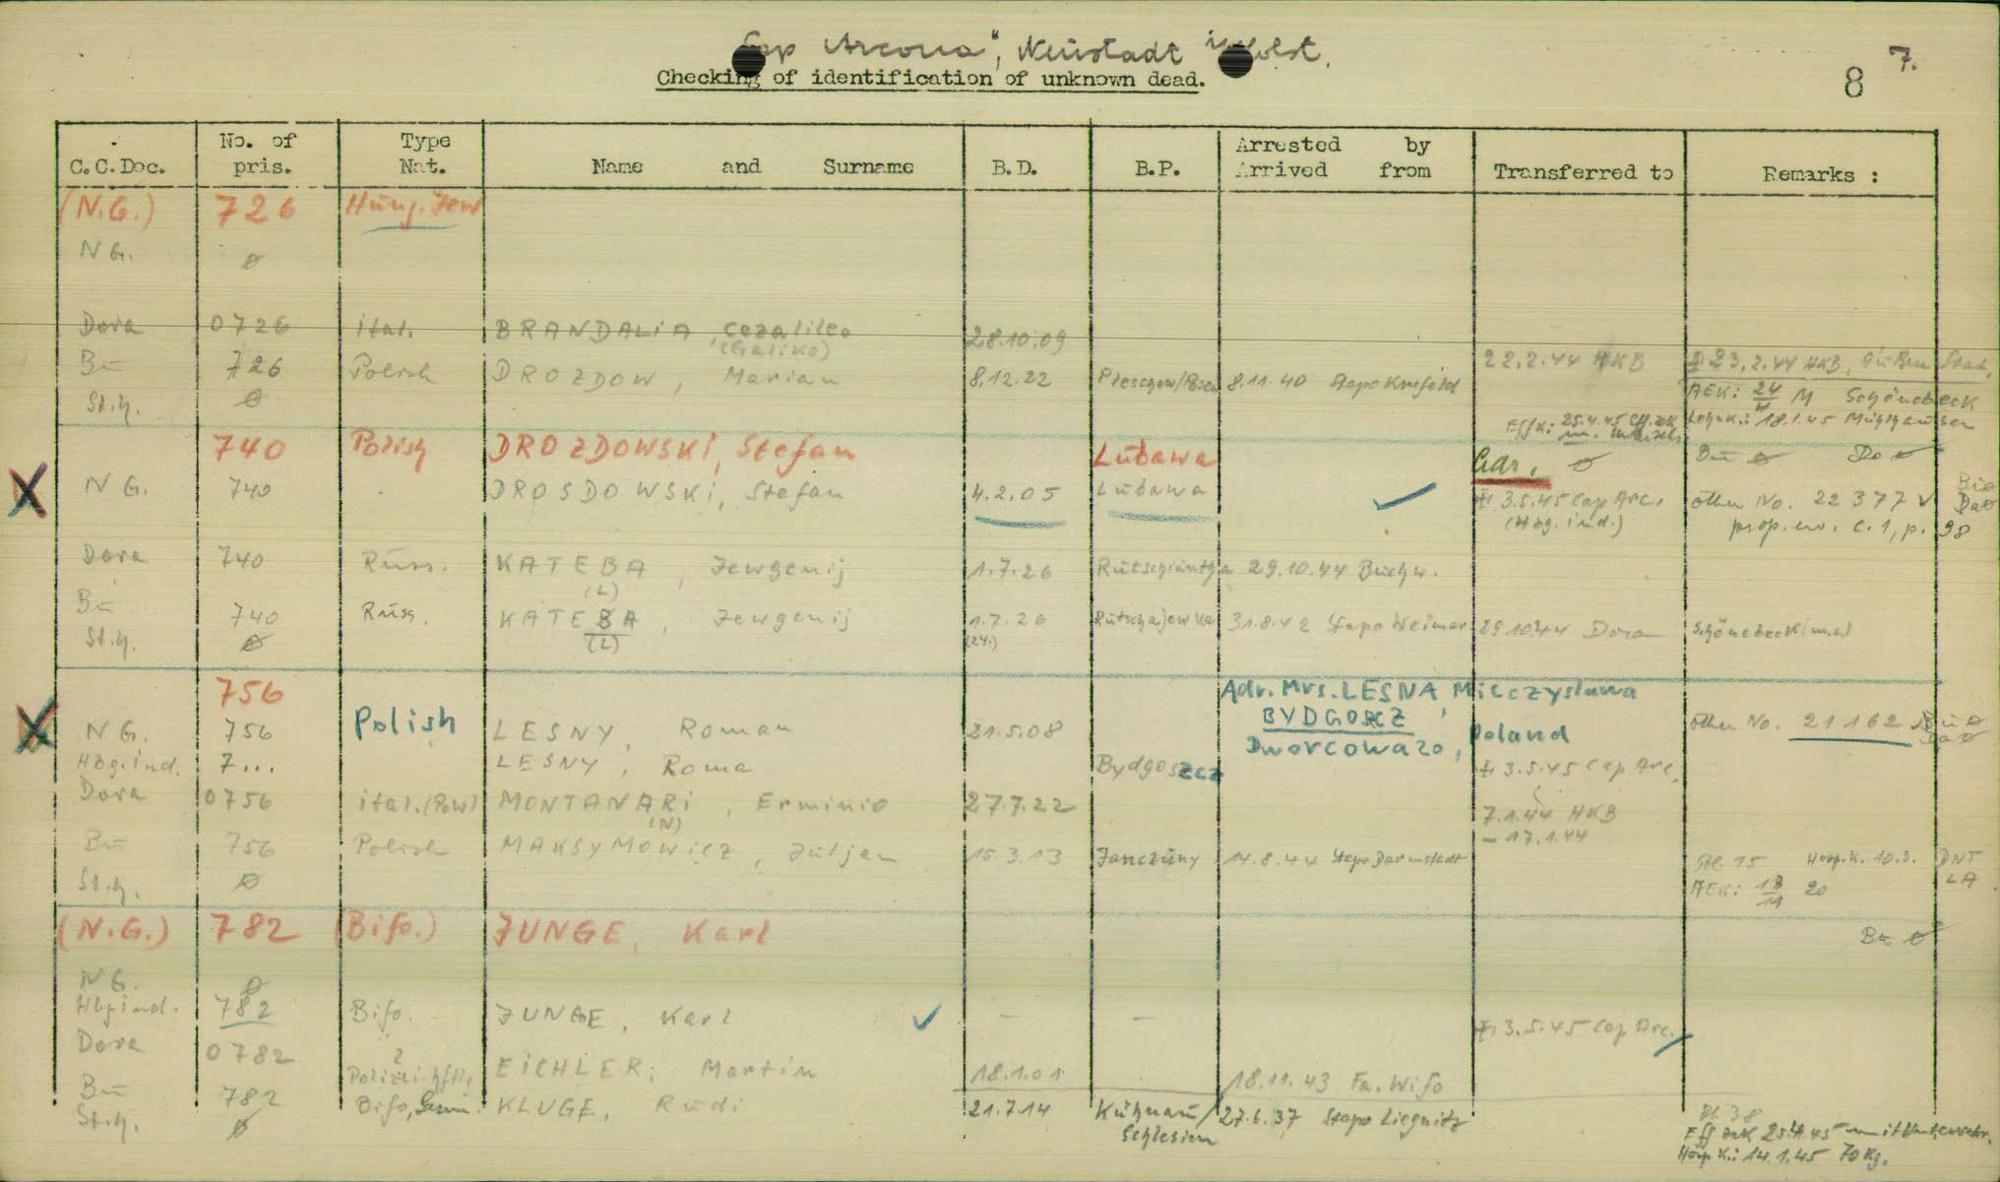 "Cap Arcona", Neustadt i. Holst.
7.
8
Checking of identification of unknown dead.
C.C.Doc. No. of pris. Type Nat. Name and Surname B.D. B.P. Arrested by Arrived from Transferred to Remarks :
(N.G.) 726 Hung. Jew
N G. ø
Dora 0726 ital. BRANDALiA, Cezalileo 28.10.09
(Galiko)
Bū 726 Polish DROZDOW, Marian 8.12.22 8.11.40 Stapo Krefeld 22.2.44 HKB ± 23.2.44 HKB,
St.h. ø AEK: 24/4 M Schönebeck
Effk: 25.4.45 18.1.45 Mühlhausen
740 Polish DROZDOWSKi, Stefan Lubawa Gar. ø Bū ø Do ø
N G. 740 DROSDOWSKi, Stefan 4.2.05 Lubawa ± 3.5.45 Cap Arc. other No. 22377 v
(Hbg. ind.) prop. env. C.1, p. 98
Dora 740 Russ. KATEBA, Jewgenij 1.7.26 29.10.44 Buchw.
(L)
Bū 740 Russ. KATEBA, Jewgenij 1.7.26 Rutschajewka 31.8.42 Stapo Weimar 29.10.44 Dora Schönebeck
St.h. ø (L) (24.)
756 Adr. Mrs. LESNA, Mieczyslawa
N G. 756 Polish LESNY, Roman 21.5.08 BYDGORCZ, Poland other No. 21162
Dworcowa 20,
Hbg.ind. 7... LESNY, Roma Bydgoszcz ± 3.5.45 Cap Arc.
Dora 0756 ital. (PoW) MONTANARi, Erminio 27.7.22 7.1.44 HKB
(N) – 17.1.44
Bū 756 Polish MAKSYMOWicZ, Juljan 15.3.13 Janczuny 14.8.44 Stapo Darmstadt Bl. 15 Hosp.K. 10.3. DNT
St.h. ø AEK: 20 LA
(N.G.) 782 (Bifo.) JUNGE, Karl Bū ø
N G. ø
Hbgind. 782 Bifo. JUNGE, Karl – – ± 3.5.45 Cap Arc.
Dora 0782 ? EiCHLER, Martin 18.1.01 18.11.43 Fa. Wifo
Bū 782 Bifo, KLUGE, Rudi 21.7.14 Kühnau/ Schlesien 27.6.37 Stapo Liegnitz Bl. 38
St.h. ø Eff 25.4.45 mit
Hosp K.: 14.1.45 70 Kg.